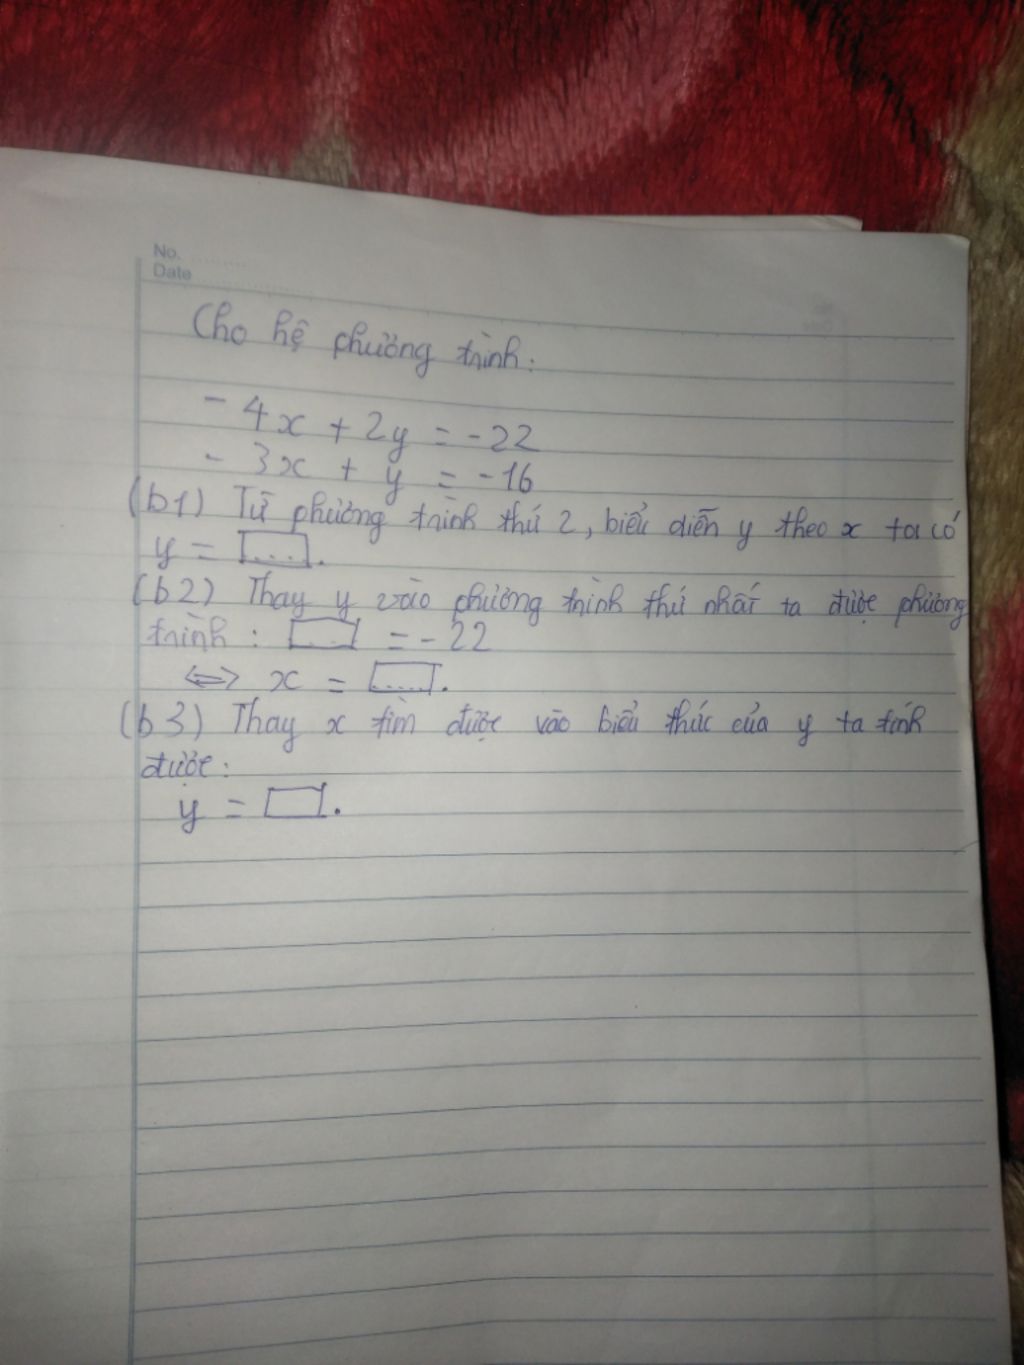 No. ..........
Date ..........
Cho hệ phương trình:
- 4x + 2y = -22
- 3x + y = -16
(b1) Từ phương trình thứ 2, biểu diễn y theo x ta có
y = [...].
(b2) Thay y vào phương trình thứ nhất ta được phương
trình : [...] = - 22
<=> x = [....].
(b3) Thay x tìm được vào biểu thức của y ta tính
được:
y = [ ].